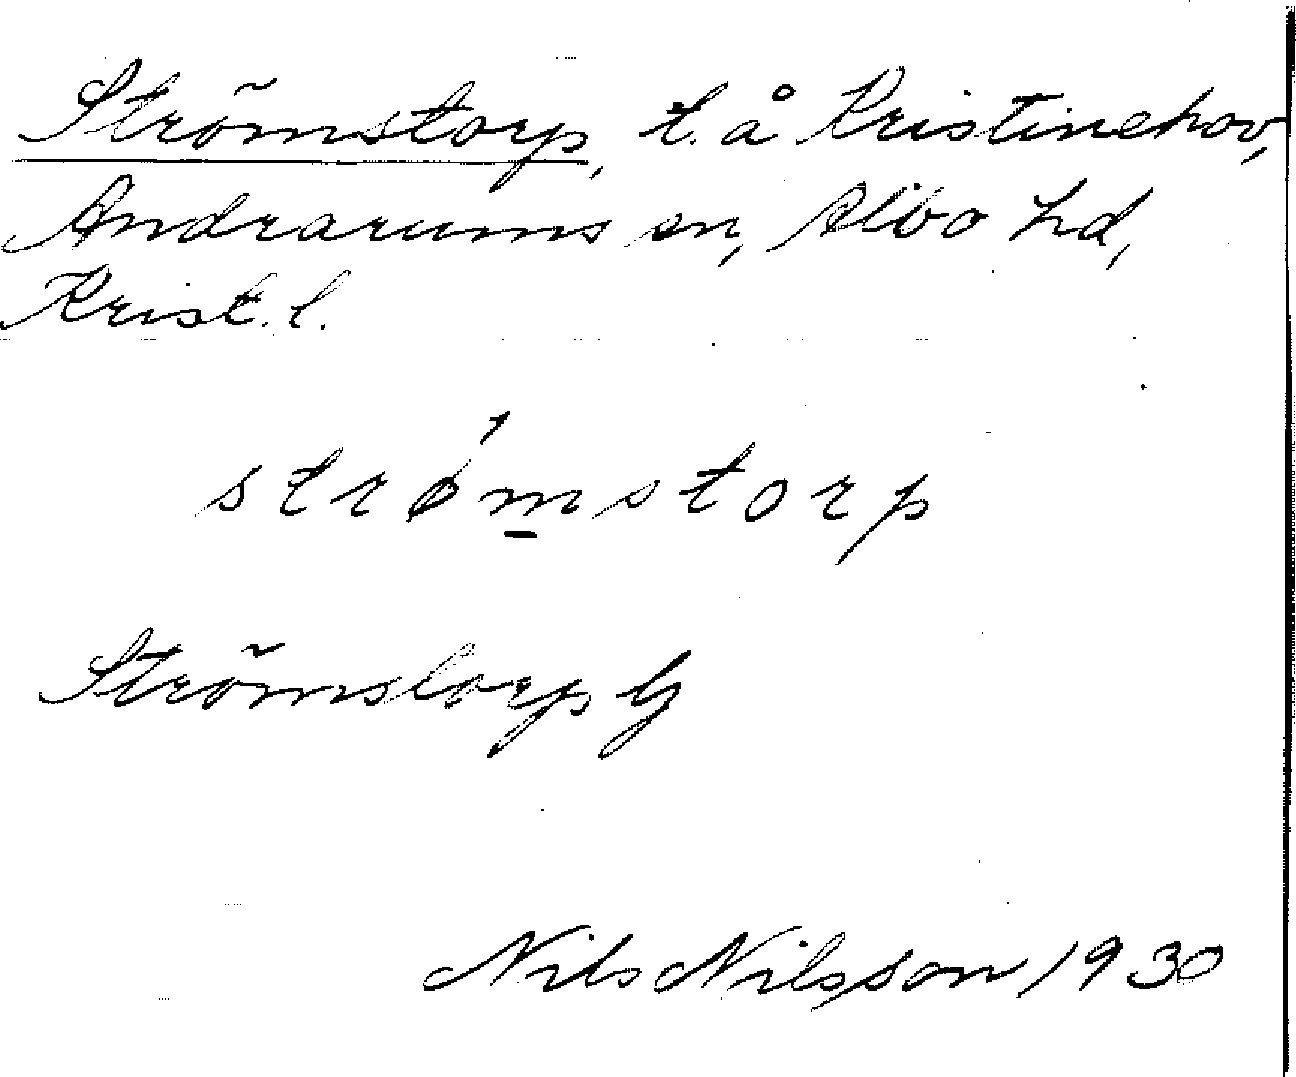 Strömstorp, t. å Kristinehov,
Andrarums sn, Albo hd,
Krist. l.
strø´m̲storp
Strömstorp G
Nils Nilsson, 1930